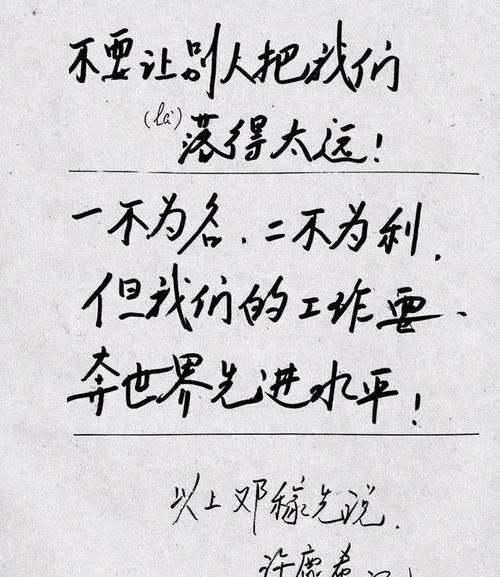 不要让别人把我们
(là)
落得太远！
一不为名、二不为利，
但我们的工作要、
奔世界先进水平！
以上邓稼先说.
许鹿希